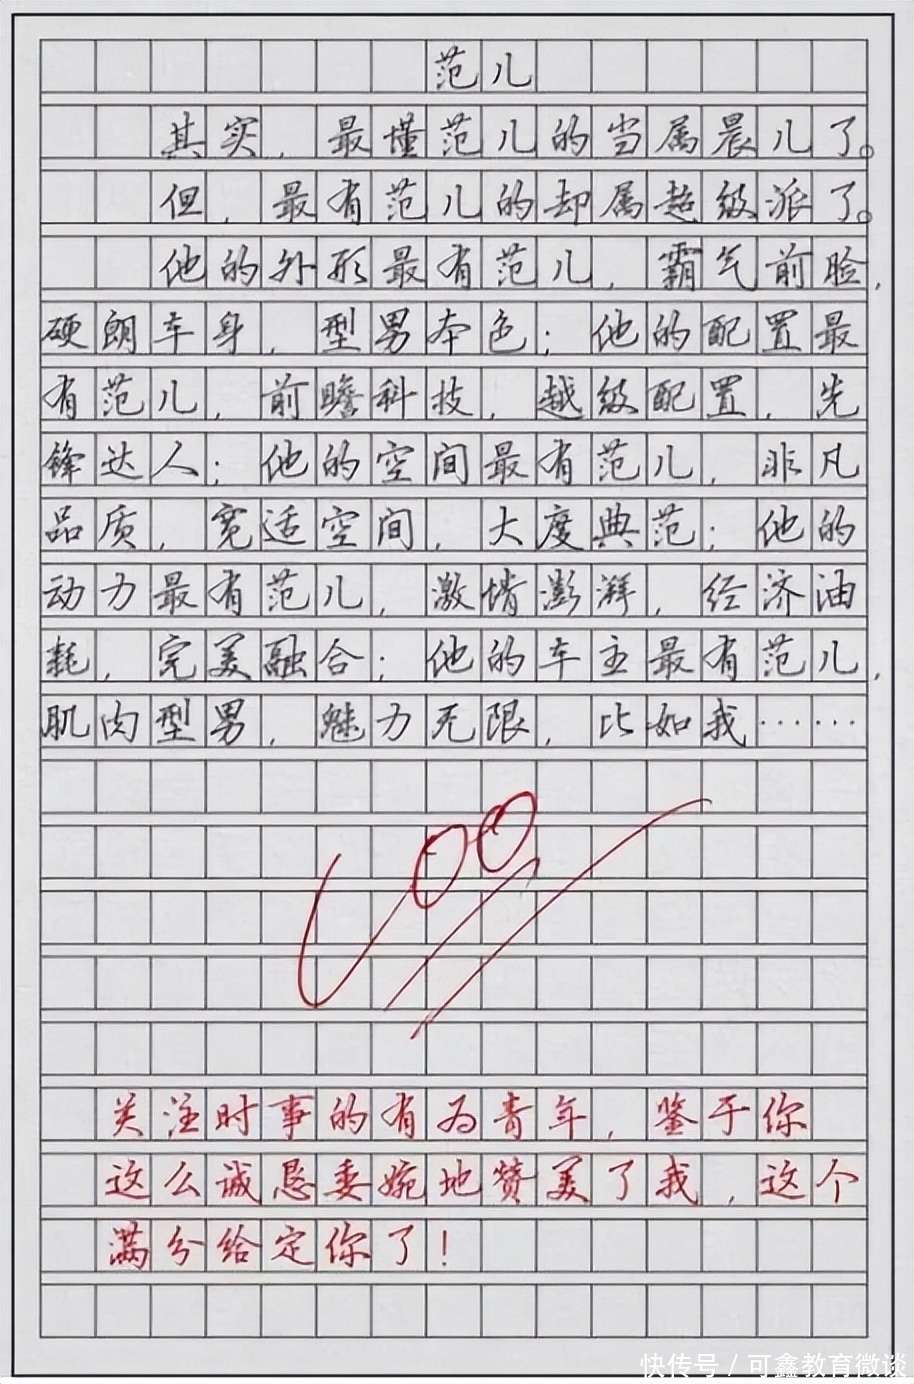 范儿
其实，最懂范儿的当属晨儿了。
但，最有范儿的却属超级派了。
他的外形最有范儿，霸气前脸，
硬朗车身，型男本色；他的配置最
有范儿，前瞻科技，越级配置，先
锋达人；他的空间最有范儿，非凡
品质，宽适空间，大度典范；他的
动力最有范儿，激情澎湃，经济油
耗，完美融合；他的车主最有范儿，
肌肉型男，魅力无限，比如我……
100
关注时事的有为青年，鉴于你
这么诚恳委婉地赞美了我，这个
满分给定你了！
快传号 / 可鑫教育微谈